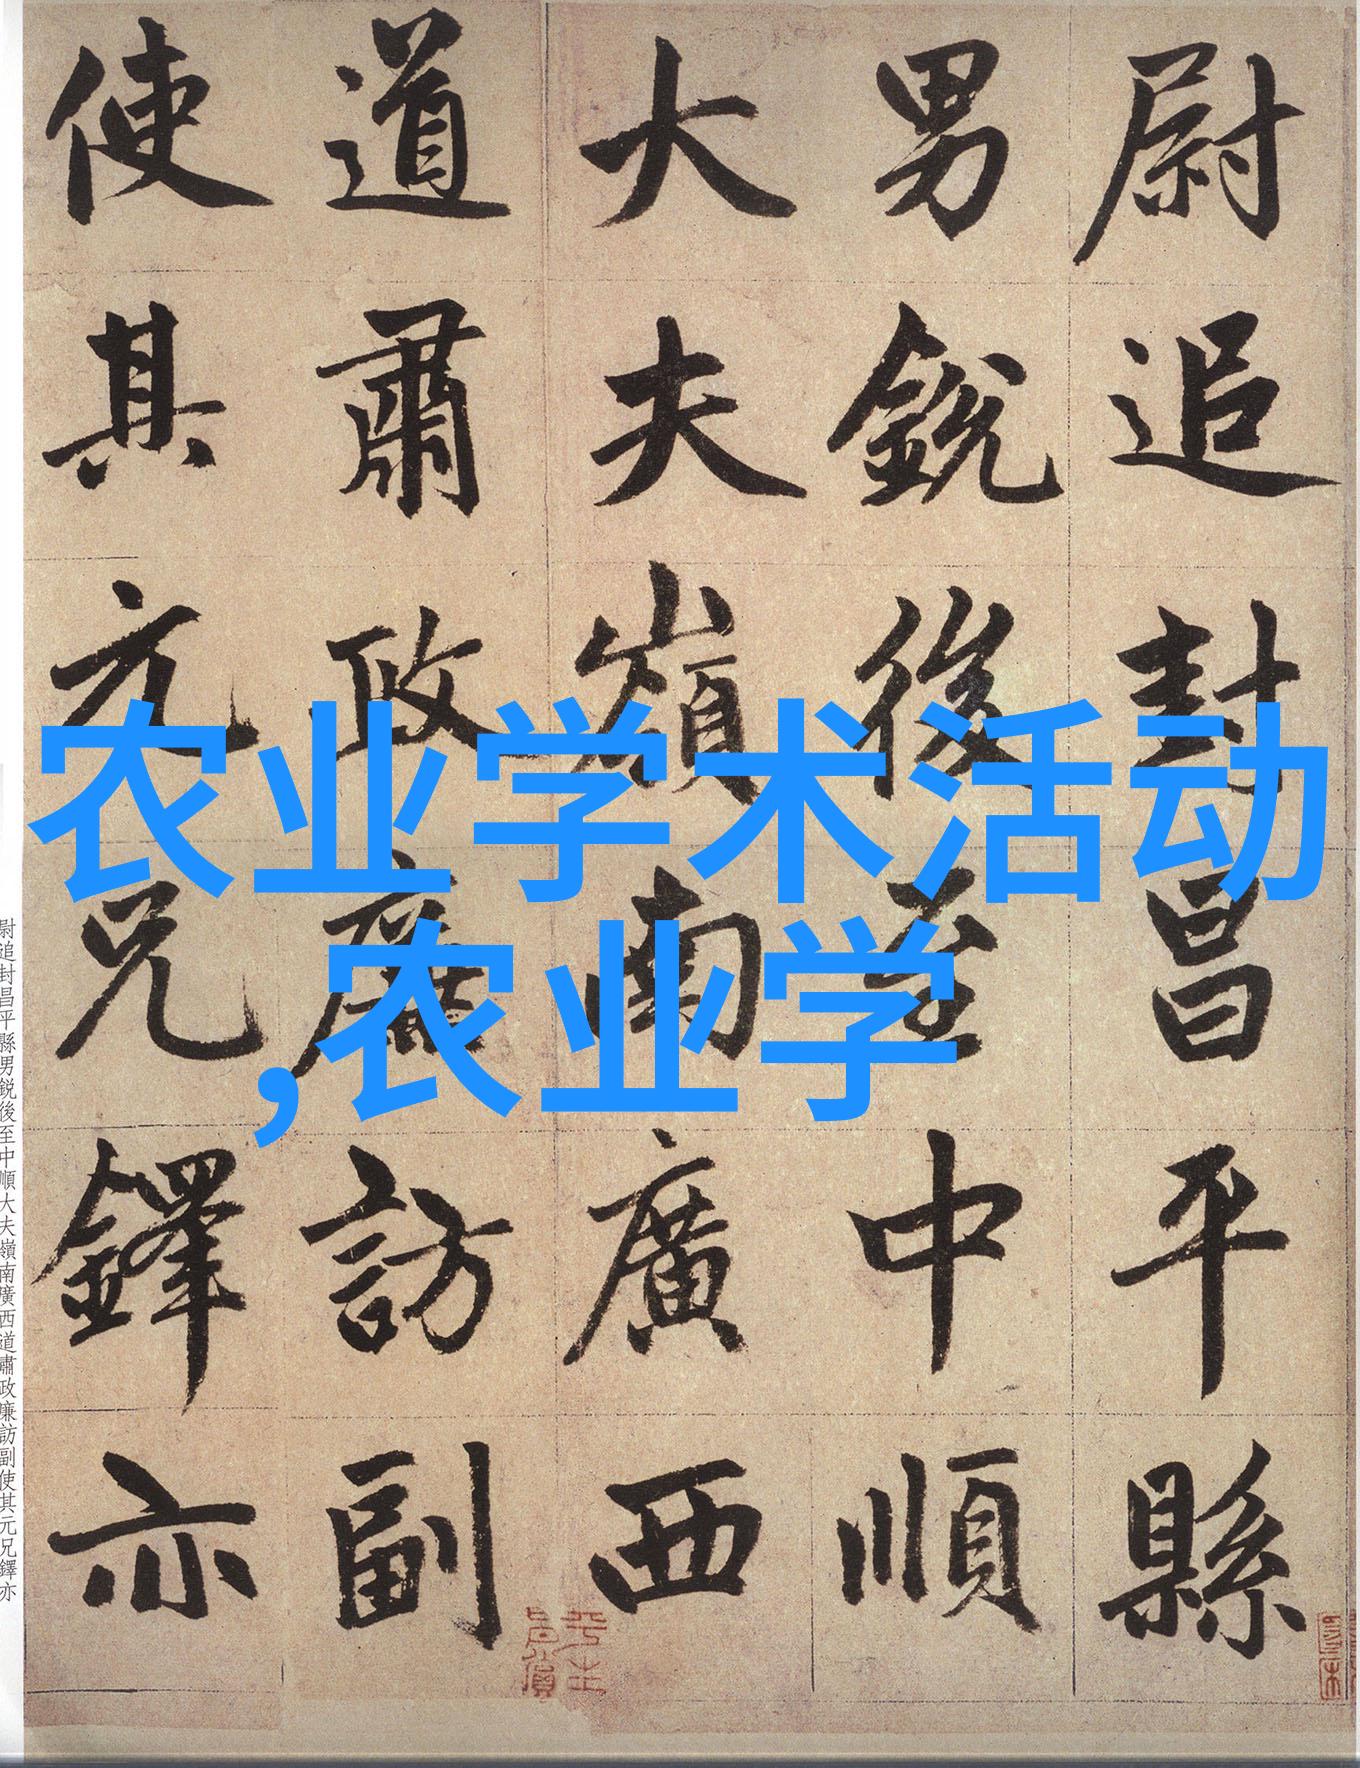 尉追封昌平縣
男銳後至中順
大夫嶺南廣西
道肅政廉訪副
使其元兄鐸亦
农业学术活动
,农业学
尉追封昌平縣男銳後至中順大夫嶺南廣西道肅政廉訪副使其元兄鐸亦